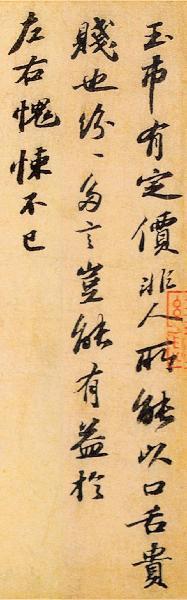 玉市有定價非人所能以口舌貴
賤也紛紛多言豈能有益於
左右愧悚不已